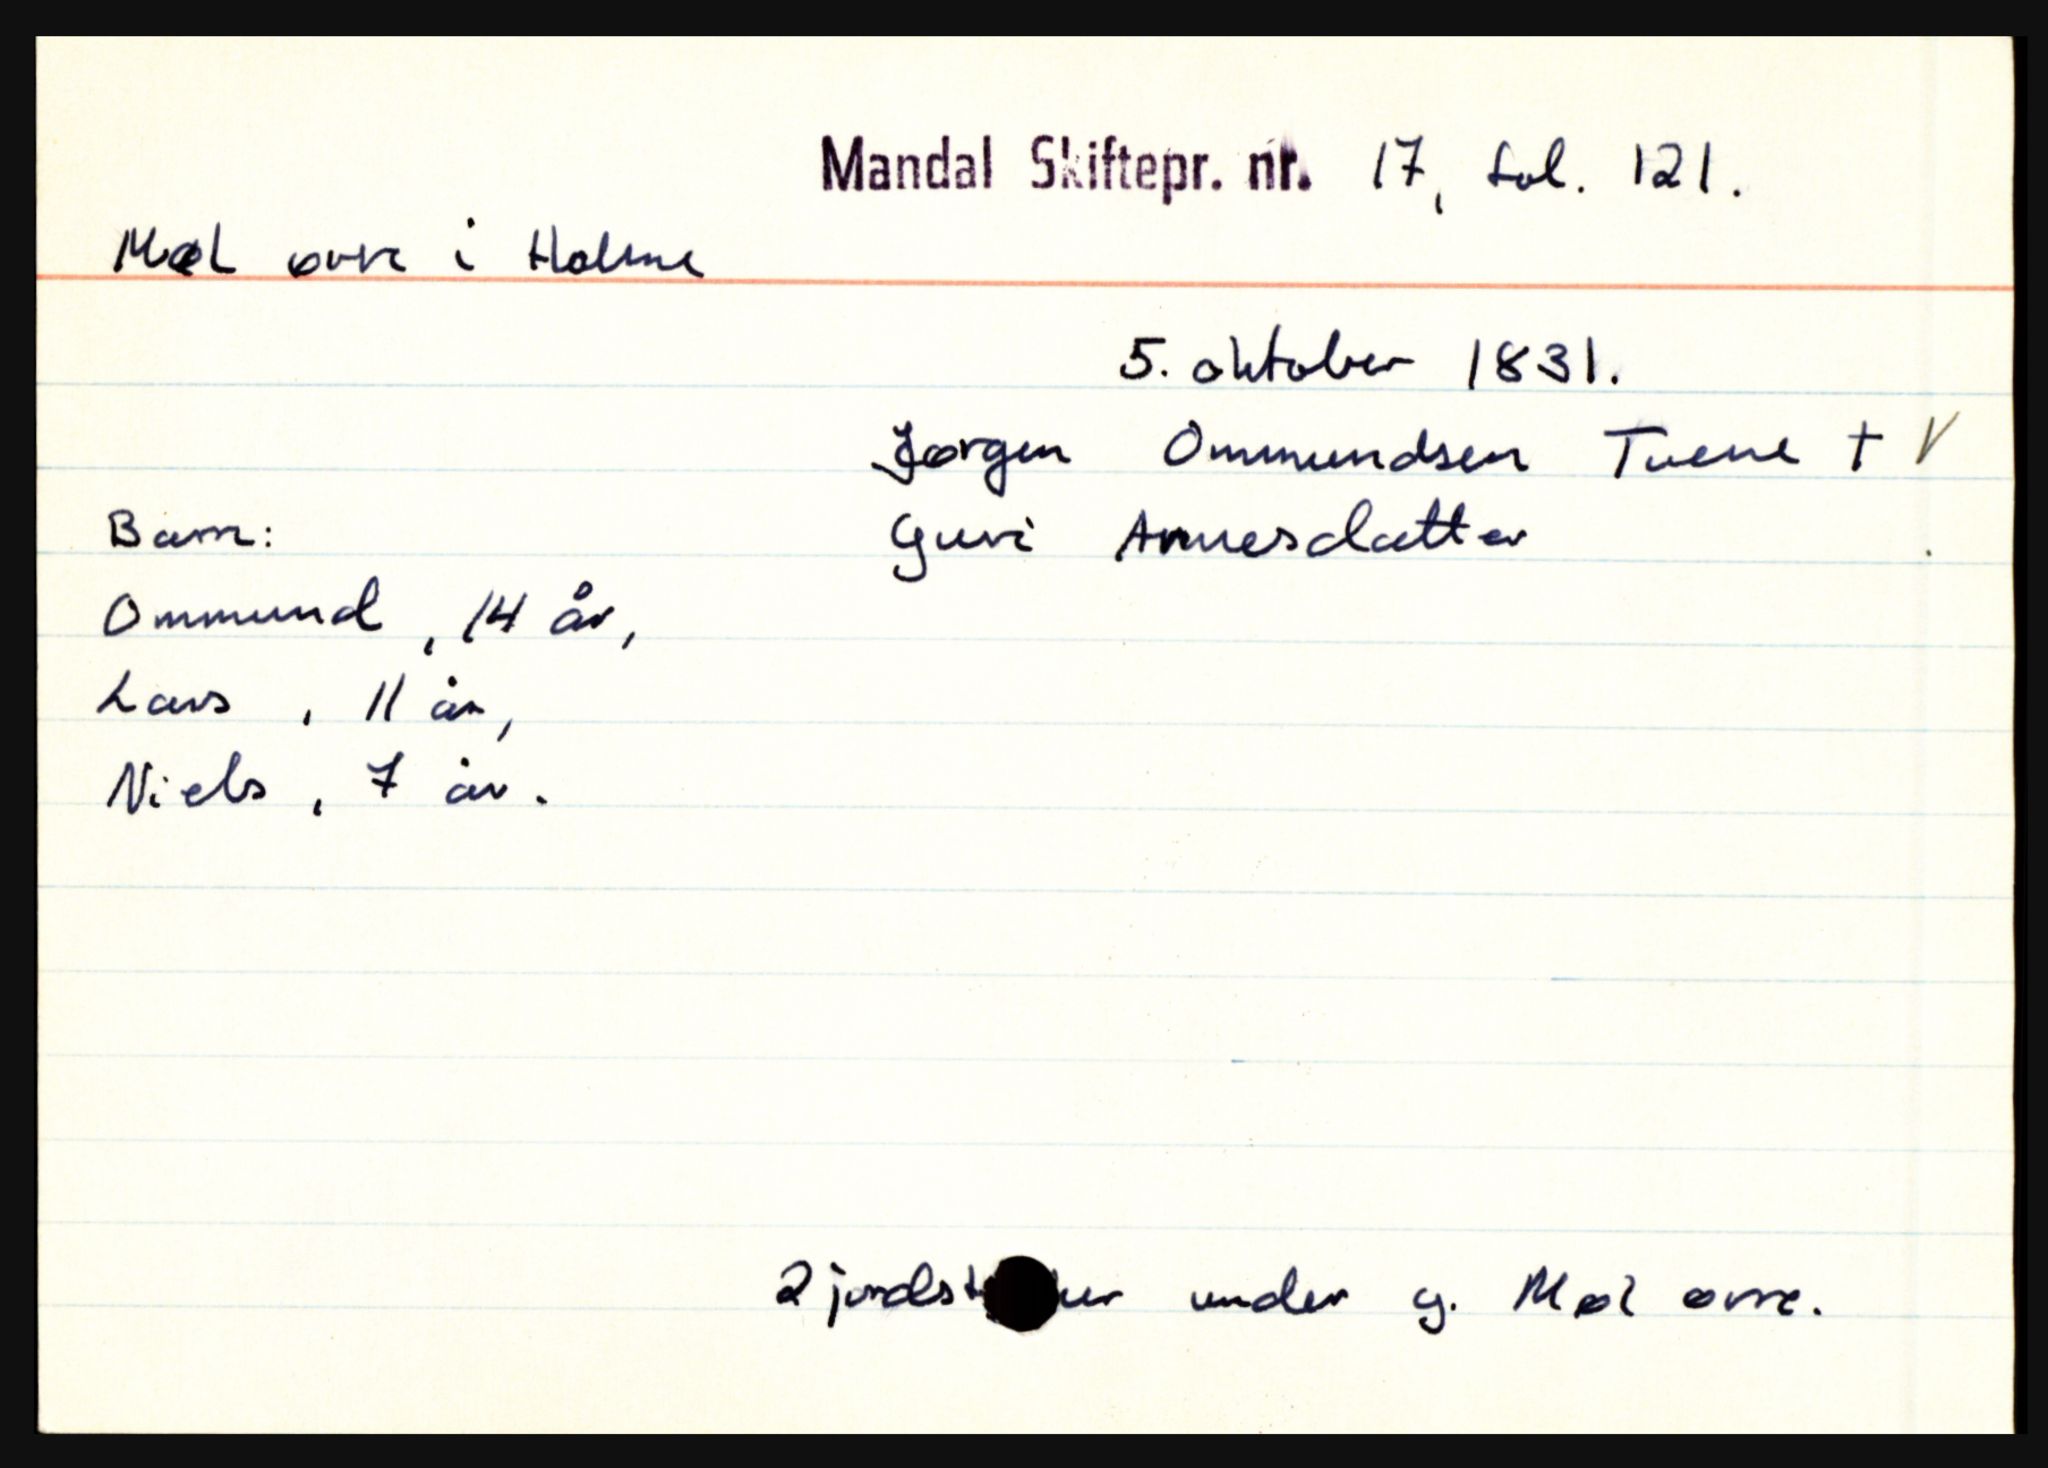 Mandal Skiftepr. nr. 17, fol. 121.
Møl øvre i Holme
5. oktober 1831.
Jørgen Ommundsen Tvene † V
Barn:
Guri Annesdatter
Ommund, 14 år,
Lars, 11 år,
Niels, 7 år.
2 under g. Møl øvre.